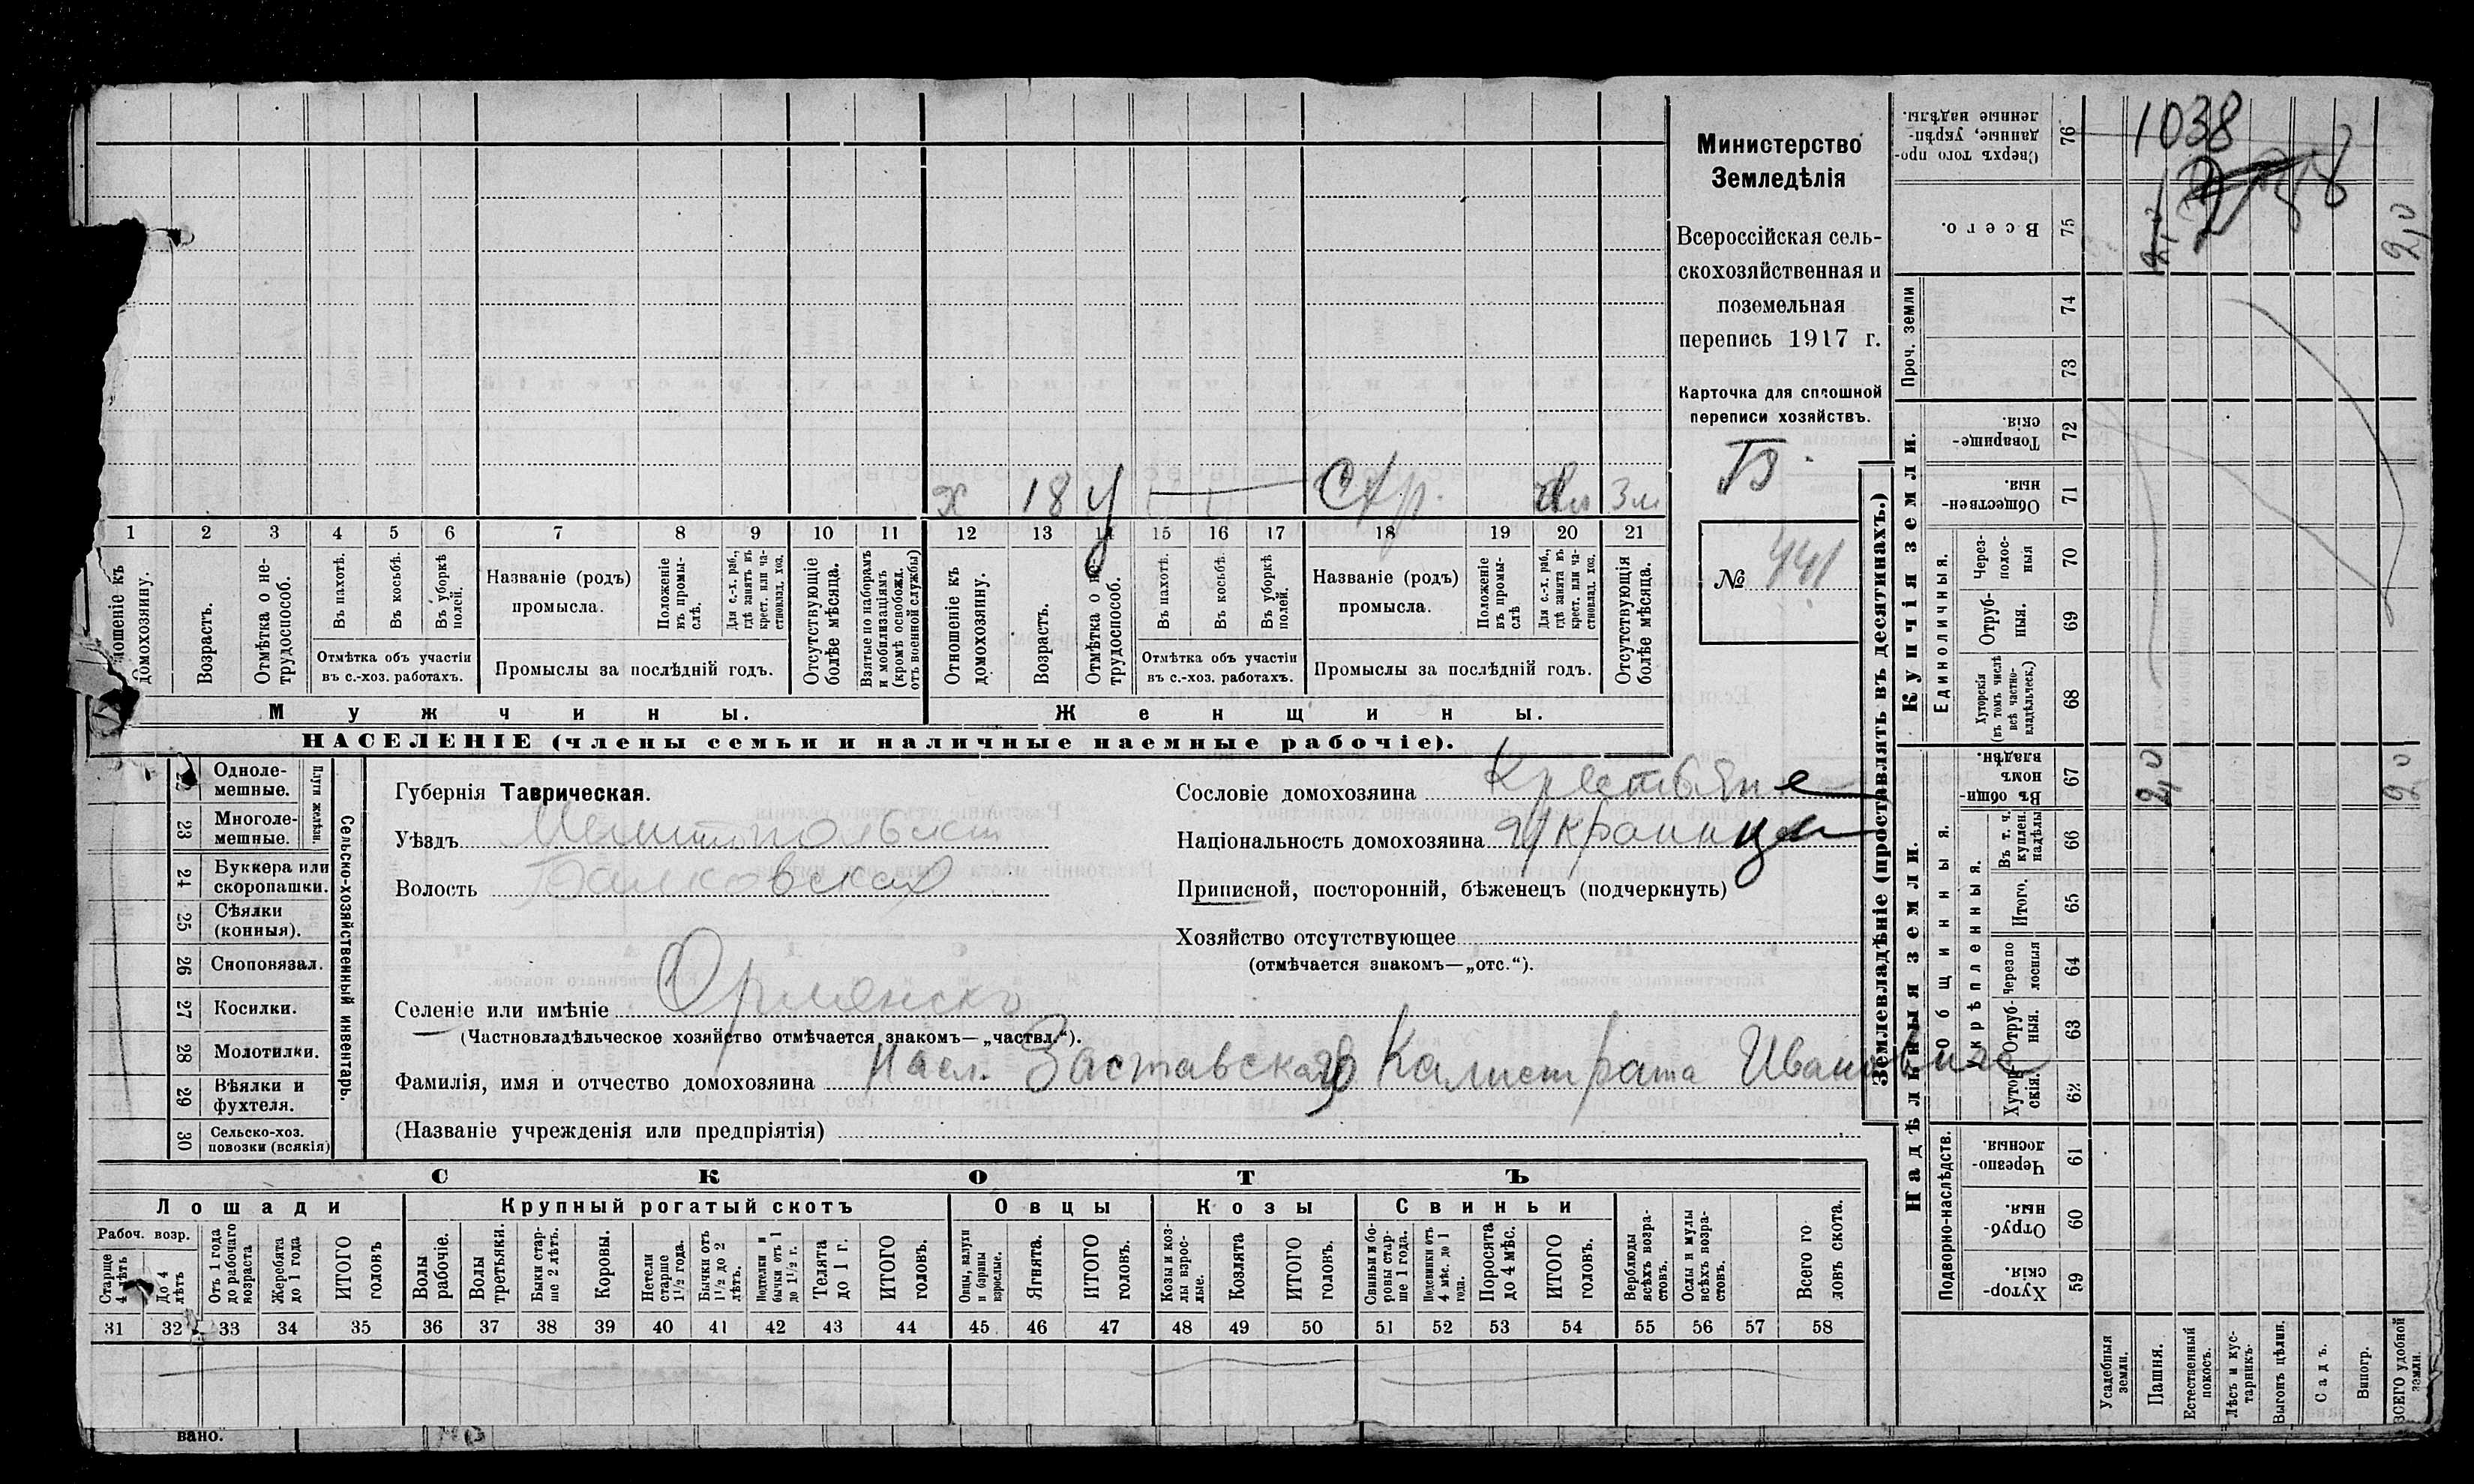 х 18 у Стр. 3 м
1 2 3 4 5 6 7 8 9 10 11 12 13 14 15 16 17 18 19 20 21
домохозяину.
Возрастъ.
Отмѣтка о не-
трудоспособ.
Въ пахотѣ.
Въ косьбѣ.
Въ уборкѣ
полей.
Отмѣтка объ участіи
въ с.-хоз. работахъ.
Названіе (родъ)
промысла.
Положеніе
въ промы-
слѣ.
Для с.-х. раб.,
гдѣ занятъ въ
крест. или ча-
стновлад. хоз.
Промыслы за послѣдній годъ.
Отсутствующіе
болѣе мѣсяца.
Взятые по наборамъ
и мобилизаціямъ
(кромѣ освобожд.
отъ военной службы)
Отношеніе къ
домохозяину.
Возрастъ.
Отмѣтка о не-
трудоспособ.
Въ пахотѣ.
Въ косьбѣ.
Въ уборкѣ
полей.
Отмѣтка объ участіи
въ с.-хоз. работахъ.
Названіе (родъ)
промысла.
Положеніе
въ промы-
слѣ
Для с.-х. раб.,
гдѣ занята въ
крест. или ча-
стновлад. хоз.
Промыслы за послѣдній годъ.
Отсутствующія
болѣе мѣсяца.
Мужчины.
Женщины.
НАСЕЛЕНІЕ (члены семьи и наличные наемные рабочіе).
Министерство
Земледѣлія
Всероссійская сель-
скохозяйственная и
поземельная
перепись 1917 г.
Карточка для сплошной
переписи хозяйствъ.
№ 441
Плуги желѣзн.
Одноле-
мешные.
23 Многоле-
мешные.
24 Буккера или
скоропашки.
25 Сѣялки
(конныя).
26 Сноповязал.
27 Косилки.
28 Молотилки.
29 Вѣялки и
фухтеля.
30 Сельско-хоз.
повозки (всякія)
Сельско-хозяйственный инвентарь.
Губернія Таврическая.
Уѣздъ Мелитопольскій
Волость Балковская
Селеніе или имѣніе
(Частновладѣльческое хозяйство отмѣчается знакомъ—„частвл.“).
Фамилія, имя и отчество домохозяина Насл. Заставскаго Калистрата Ивановича
(Названіе учрежденія или предпріятія)
Сословіе домохозяина Крестьяне
Національность домохозяина Украинцы
Приписной, посторонній, бѣженецъ (подчеркнуть)
Хозяйство отсутствующее
(отмѣчается знакомъ—„отс.“).
СКОТЪ
Лошади
Крупный рогатый скотъ
Овцы
Козы
Свиньи
Рабоч. возр.
Старше
4 лѣтъ
До 4
лѣтъ
Отъ 1 года
до рабочаго
возраста
Жеребята
до 1 года
ИТОГО
головъ
Волы
рабочіе.
Волы
третьяки.
Быки стар-
ше 2 лѣтъ.
Коровы.
Нетели
старше
1½ года.
Бычки отъ
1½ до 2
лѣтъ.
Подтелки и
бычки отъ 1
до 1½ г.
Телята
до 1 г.
ИТОГО
головъ.
Овцы, валухи
и бараны
взрослые.
Ягнята.
ИТОГО
головъ.
Козы и коз-
лы взрос-
лые.
Козлята
ИТОГО
головъ.
Свиньи и бо-
ровы стар-
ше 1 года.
Подсвинки отъ
4 мѣс. до 1
года.
Поросята
до 4 мѣс.
ИТОГО
головъ.
Верблюды
всѣхъ возра-
стовъ.
Ослы и мулы
всѣхъ возра-
стовъ.
Всего го
ловъ скота.
31 32 33 34 35 36 37 38 39 40 41 42 43 44 45 46 47 48 49 50 51 52 53 54 55 56 57 58
вано.
Землевладѣніе (проставлять въ десятинахъ.)
Надѣльныя земли.
Купчія земли.
Подворно-наслѣдств.
Общинныя.
Укрѣпленныя.
Единоличныя.
Проч. земли
Сверхъ того про-
данные, укрѣп-
ленные надѣлы.
76
Всего.
75
74
73
Товарище-
скія
72
Обществен-
ныя.
71
Через-
полос-
ныя
70
Отруб-
ныя.
69
Хуторскія
(въ томъ числѣ
всѣ частно-
владѣльческ.)
68
Въ общин-
номъ
владѣн.
67
Въ т. ч.
куплен.
надѣлы
66
Итого.
65
Черезпо
лосныя
64
Отруб-
ныя.
63
Хутор-
скія.
62
Черезпо-
лосныя
61
Отруб-
ныя.
60
Хутор-
скія.
59
Усадебныя
земли.
Пашня.
Естественный
покосъ.
Лѣсъ и кус-
тарникъ.
Выгонъ цѣлин.
Садъ.
Виногр.
ВСЕГО удобной
земли.
1038
2,0
2,0
2,0
2,0